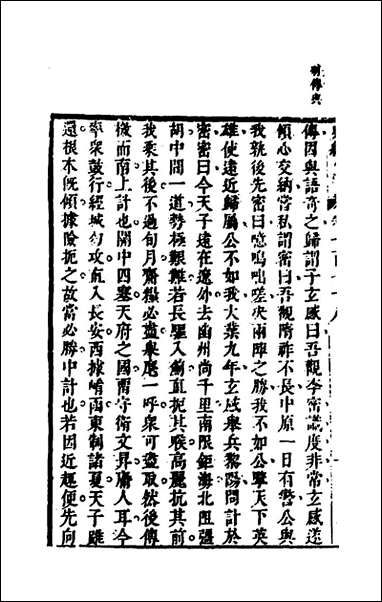 傳因與語奇之歸謂子玄感曰吾觀李密識度非常玄感遂
傾心交納嘗私謂密曰吾觀隋祚不長中原一日有警公與
我孰後先密曰噫嗚咄嗟決兩陣之勝我不如公擥天下英
雄使遠近歸屬公不如我大業九年玄感舉兵黎陽問計於
密密曰今天子遠在遼外去幽州尚千里南限鉅海北阻彊
胡中間一道勢極艱難若長驅入薊直扼其喉高麗抗其前
我乘其後不過旬月齎糧必盡舉麾一呼衆可盡取然後傳
檄而南上計也關中四塞天府之國衞守衛文昇庸人耳今
率衆鼓行經城勿攻直入長安西據崤函東制諸夏天子雖
還根本旣傾據險扼之故當必勝中計也若因近趣便先向